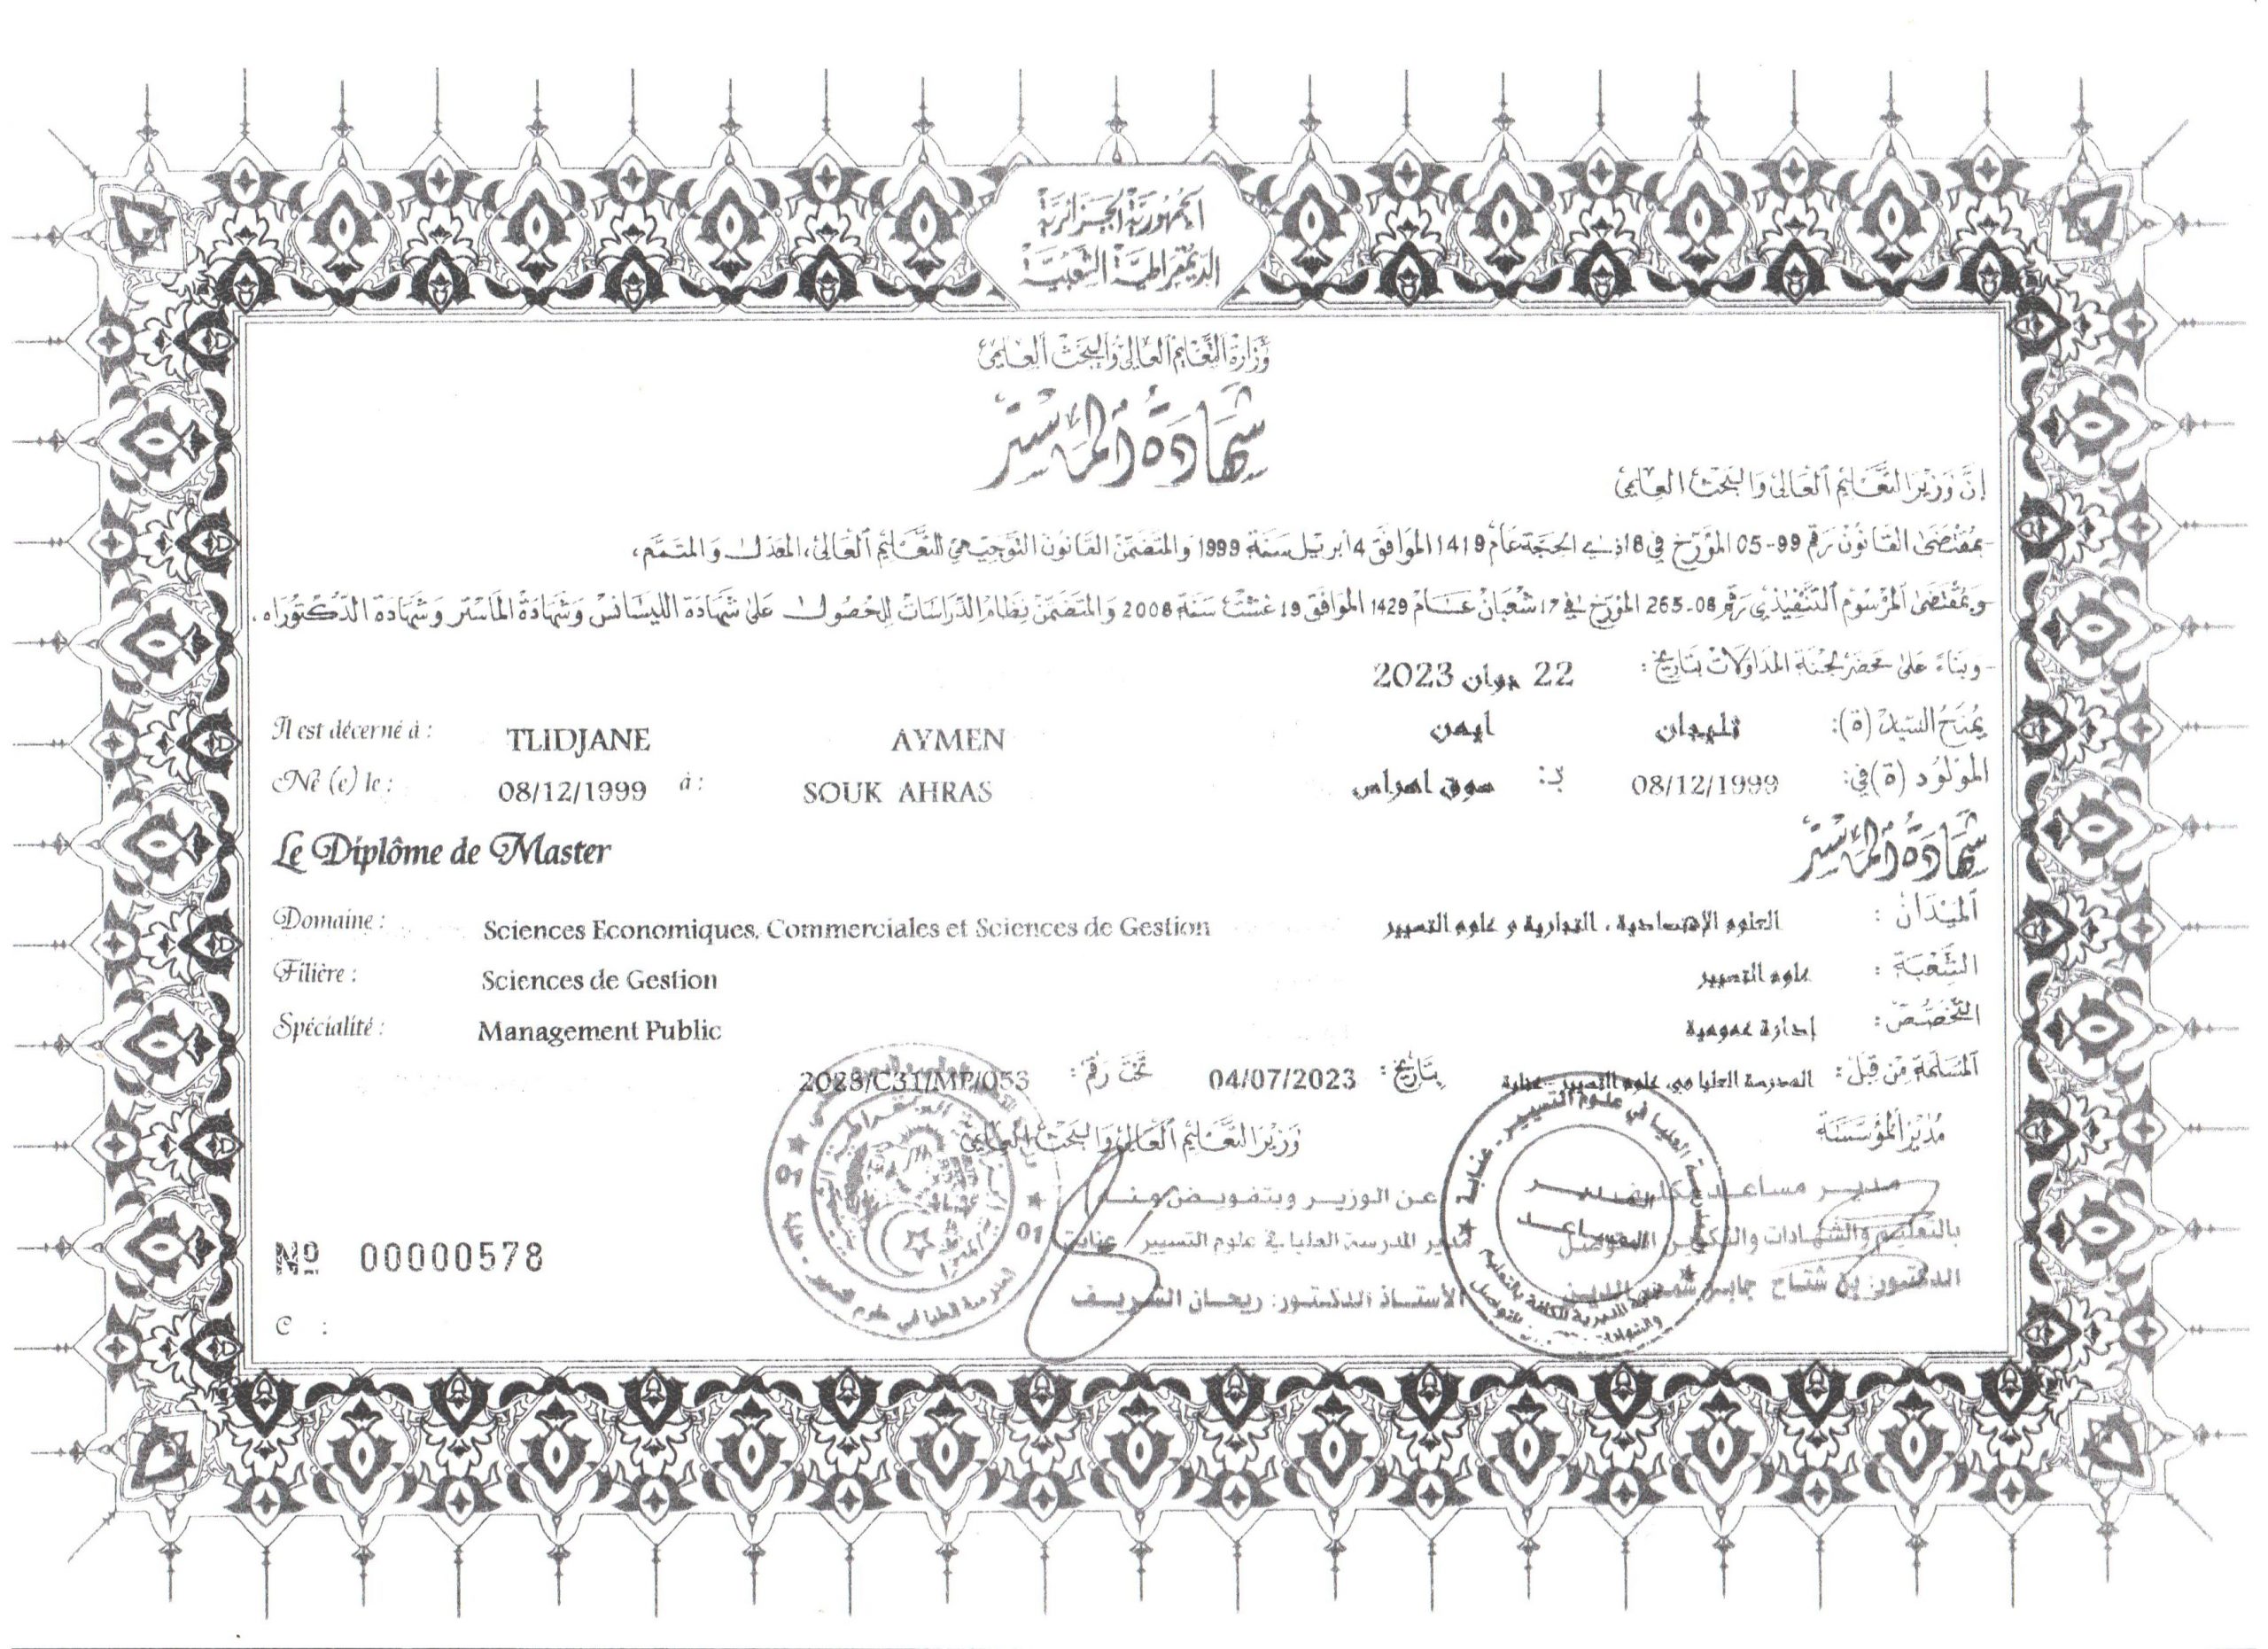 الجمهورية الجزائرية
الديمقراطية الشعبية
وزارة التعليم العالي والبحث العلمي
شهادة الماستر
إن وزير التعليم العالي والبحث العلمي
- بمقتضى القانون رقم 99-05 المؤرخ في 18 ذي الحجة عام 1419 الموافق 4 أبريل سنة 1999 والمتضمن القانون التوجيهي للتعليم العالي، المعدل والمتمم،
- وبمقتضى المرسوم التنفيذي رقم 08-265 المؤرخ في 17 شعبان عام 1429 الموافق 19 غشت سنة 2008 والمتضمن نظام الدراسات للحصول على شهادة الليسانس وشهادة الماستر وشهادة الدكتوراه.
- وبناء على محضر لجنة المداولات بتاريخ : 22 جوان 2023
يمنح السيد (ة): تليجان ايمن
Il est décerné à : TLIDJANE AYMEN
المولود (ة) في: 08/12/1999 بـ: سوق اهراس
Né (e) le : 08/12/1999 à : SOUK AHRAS
شهادة الماستر
Le Diplôme de Master
الميدان : العلوم الإقتصادية ، التجارية و علوم التسيير
Domaine : Sciences Economiques, Commerciales et Sciences de Gestion
الشعبة : علوم التسيير
Filière : Sciences de Gestion
التخصص : إدارة عمومية
Spécialité : Management Public
المسلمة من قبل : المدرسة العليا في علوم التسيير - عنابة بتاريخ : 04/07/2023 تحت رقم : 2023/C31/MP/053
مدير المؤسسة
وزير التعليم العالي والبحث العلمي
مدير مساعد مكلف
بالتعليم والشهادات والتكوين المتواصل
الدكتور: بن شتاح جابر شمس الدين
عن الوزير وبتفويض منه
مدير المدرسة العليا في علوم التسيير / عنابة
الأستاذ الدكتور: ريحان الشريف
№ 00000578
C :